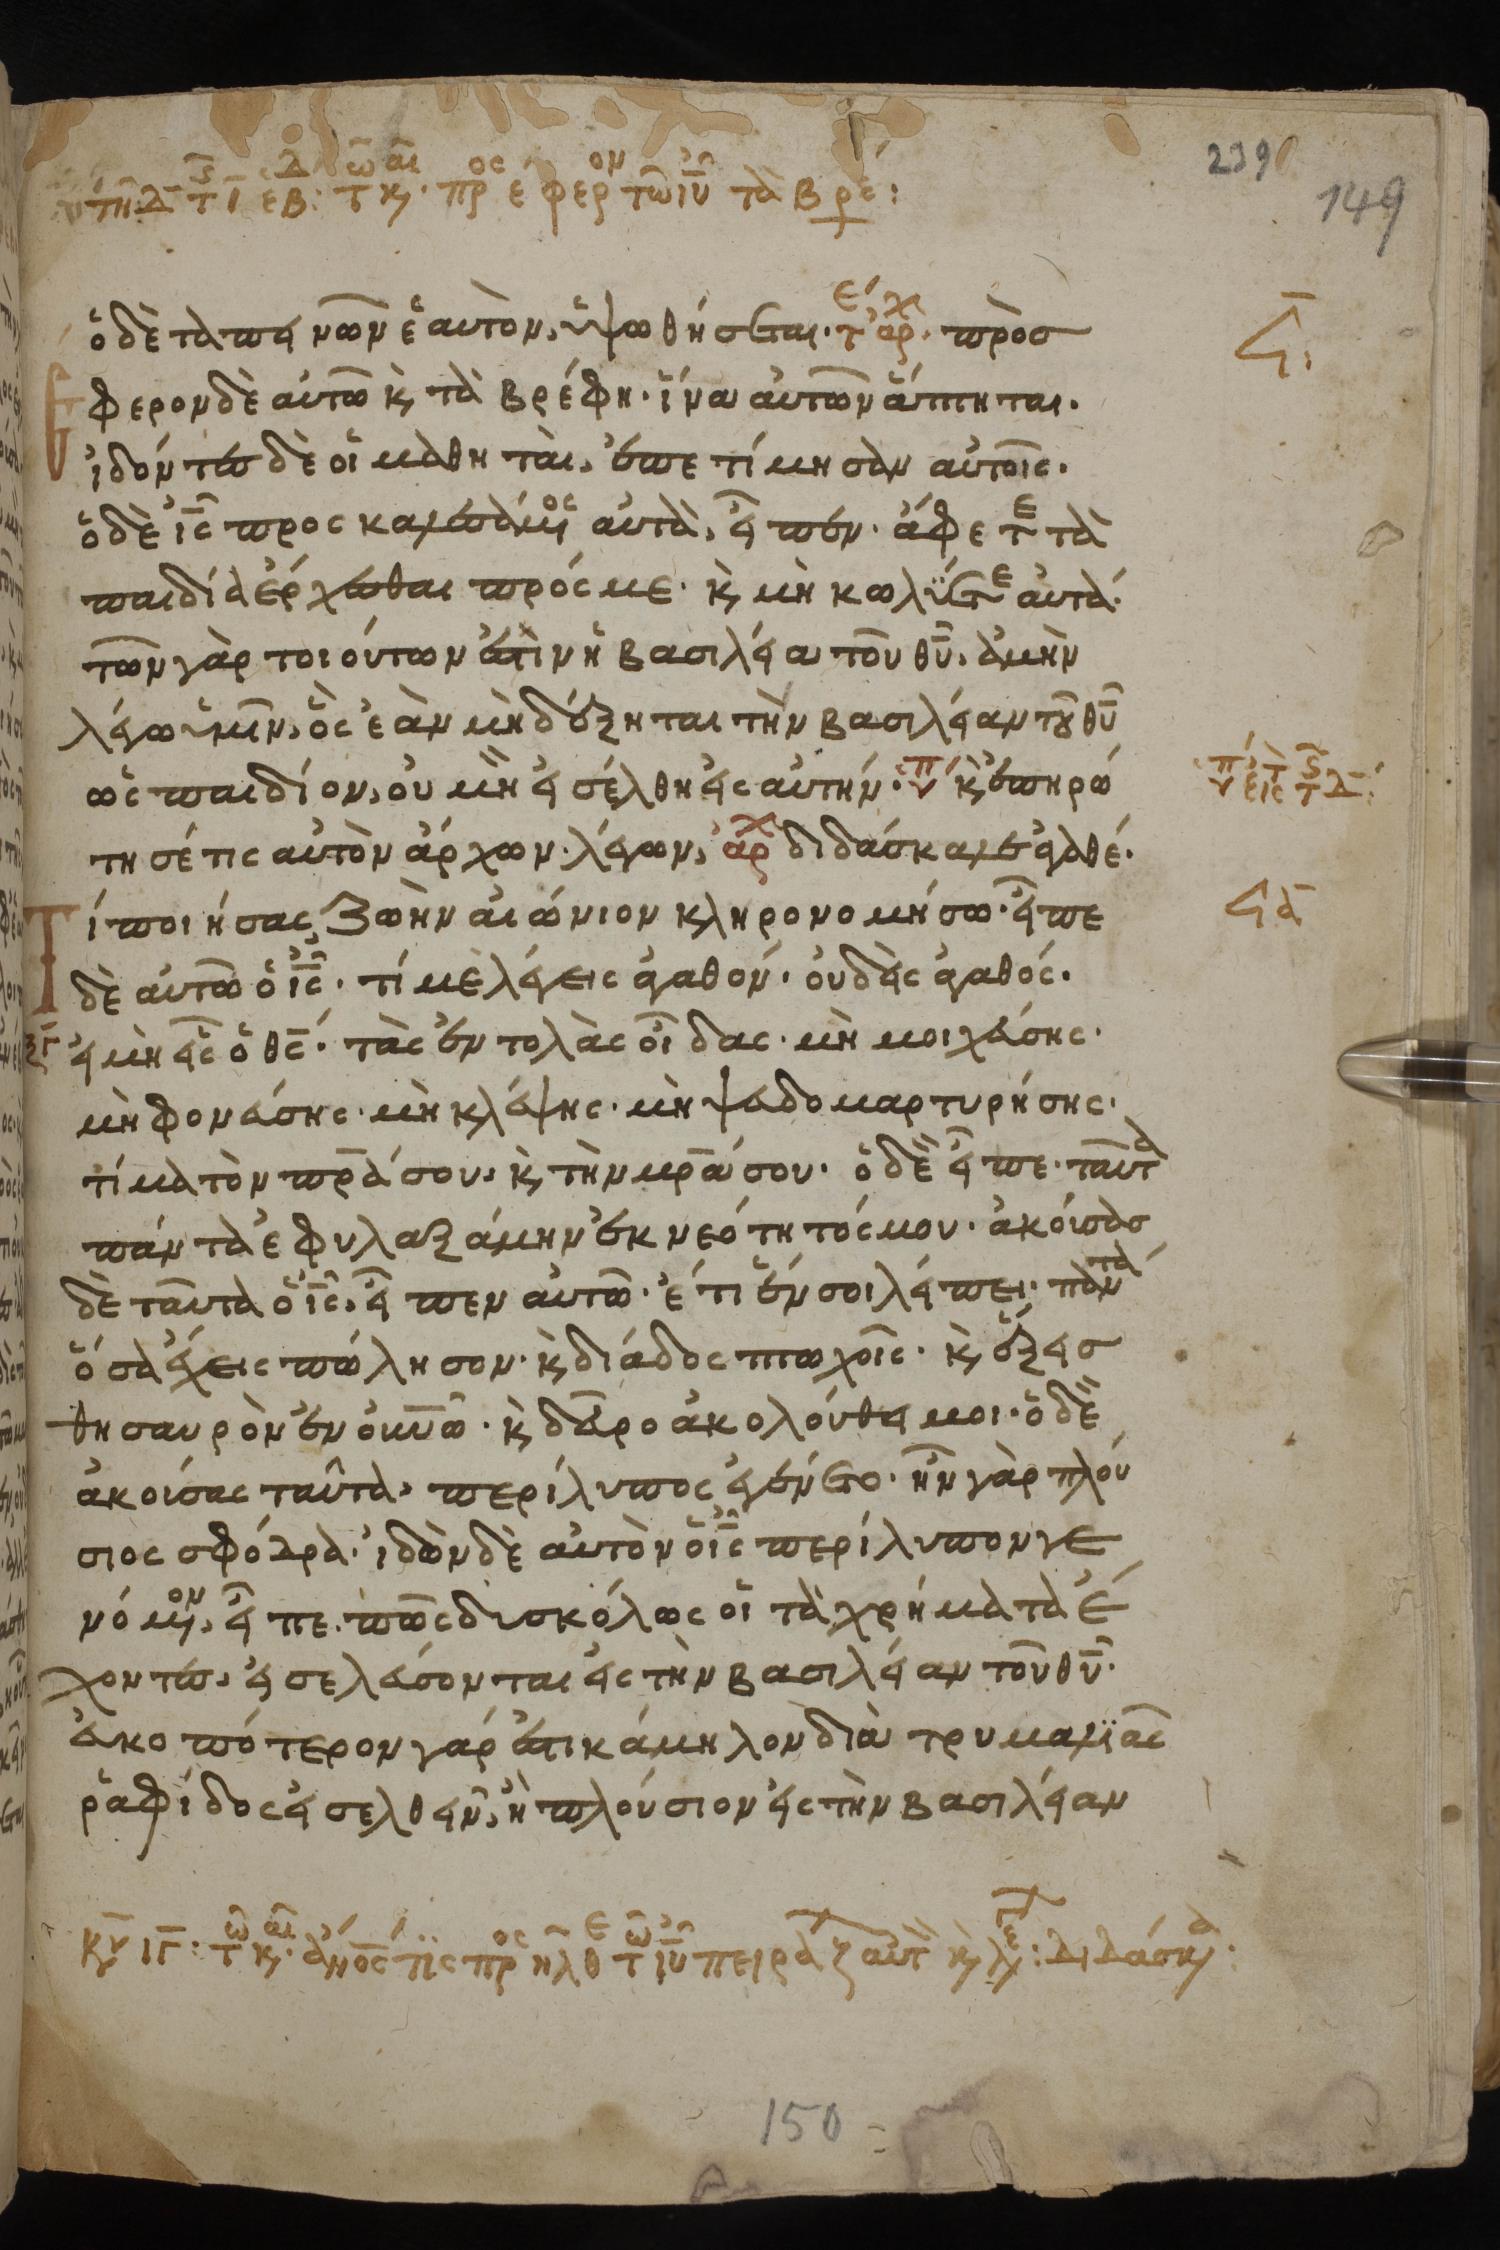 239
149
ὁ δὲ ταπεινῶν ἑαυτὸν, ὑψωθήσεται. τέ ἀρχ. πρὸσ
Εφερον δὲ αὐτῶ κ, τὰ βρέφη. ἵνα αὐτῶν ἅπτηται.
ἰδόντες δὲ οἱ μαθηταὶ, ἐπετίμησαν αὐτοῖς.
ὁ δὲ ἰς προσκαλεσάμενος αὐτὰ, εἶπεν. ἄφετε τὰ
παιδία ἔρχεσθαι πρός με. κ, μὴ κωλύετε αὐτά.
τῶν γὰρ τοιούτων ἐστὶν ἡ βασιλεία τοῦ θυ. ἀμὴν
λέγω ὑμῖν, ὃς ἐὰν μὴ δέξηται τὴν βασιλείαν τοῦ θυ
ὡς παιδίον, οὐ μὴ εἰσέλθη εἰς αὐτήν. κ, ἐπηρώ
τησέ τις αὐτὸν ἄρχων λέγων, ἀρχ διδάσκαλε ἀγαθέ.
Τί ποιήσας ζωὴν αἰώνιον κληρονομήσω. εἶπε
δὲ αὐτῶ ὁ ἰς. τί με λέγεις ἀγαθόν. οὐδεὶς ἀγαθός.
εἰ μὴ εἷς ὁ θς. τὰς ἐντολὰς οἶδας. μὴ μοιχεύσης.
μὴ φονεύσης. μὴ κλέψης. μὴ ψευδομαρτυρήσης.
τίμα τὸν πρα σου, κ, τὴν μρα σου. ὁ δὲ εἶπε. ταῦτα
πάντα ἐφυλαξάμην ἐκ νεότητός μου. ἀκούσασ
δὲ ταῦτα ὁ ἰς, εἶπεν αὐτῶ. ἔτι ἕν σοι λείπει. πάντα
ὅσα ἔχεις πώλησον. κ, διάδος πτωχοῖς. κ, ἕξεισ
θησαυρὸν ἐν οὐνῶ. κ, δεῦρο ἀκολούθει μοι. ὁ δὲ
ἀκούσας ταῦτα, περίλυπος ἐγένετο. ἦν γὰρ πλού
σιος σφόδρα. ἰδὼν δὲ αὐτὸν ὁ ἰς περίλυπον γε
νόμενον, εἶπε. πῶς δυσκόλως οἱ τὰ χρήματα ἔ
χοντες, εἰσελεύσονται εἰς τὴν βασιλείαν τοῦ θυ.
εὐκοπώτερον γάρ ἐστι κάμηλον διὰ τρυμαλιᾶς
ῥαφίδος εἰσελθεῖν, ἢ πλούσιον εἰς τὴν βασιλείαν
150